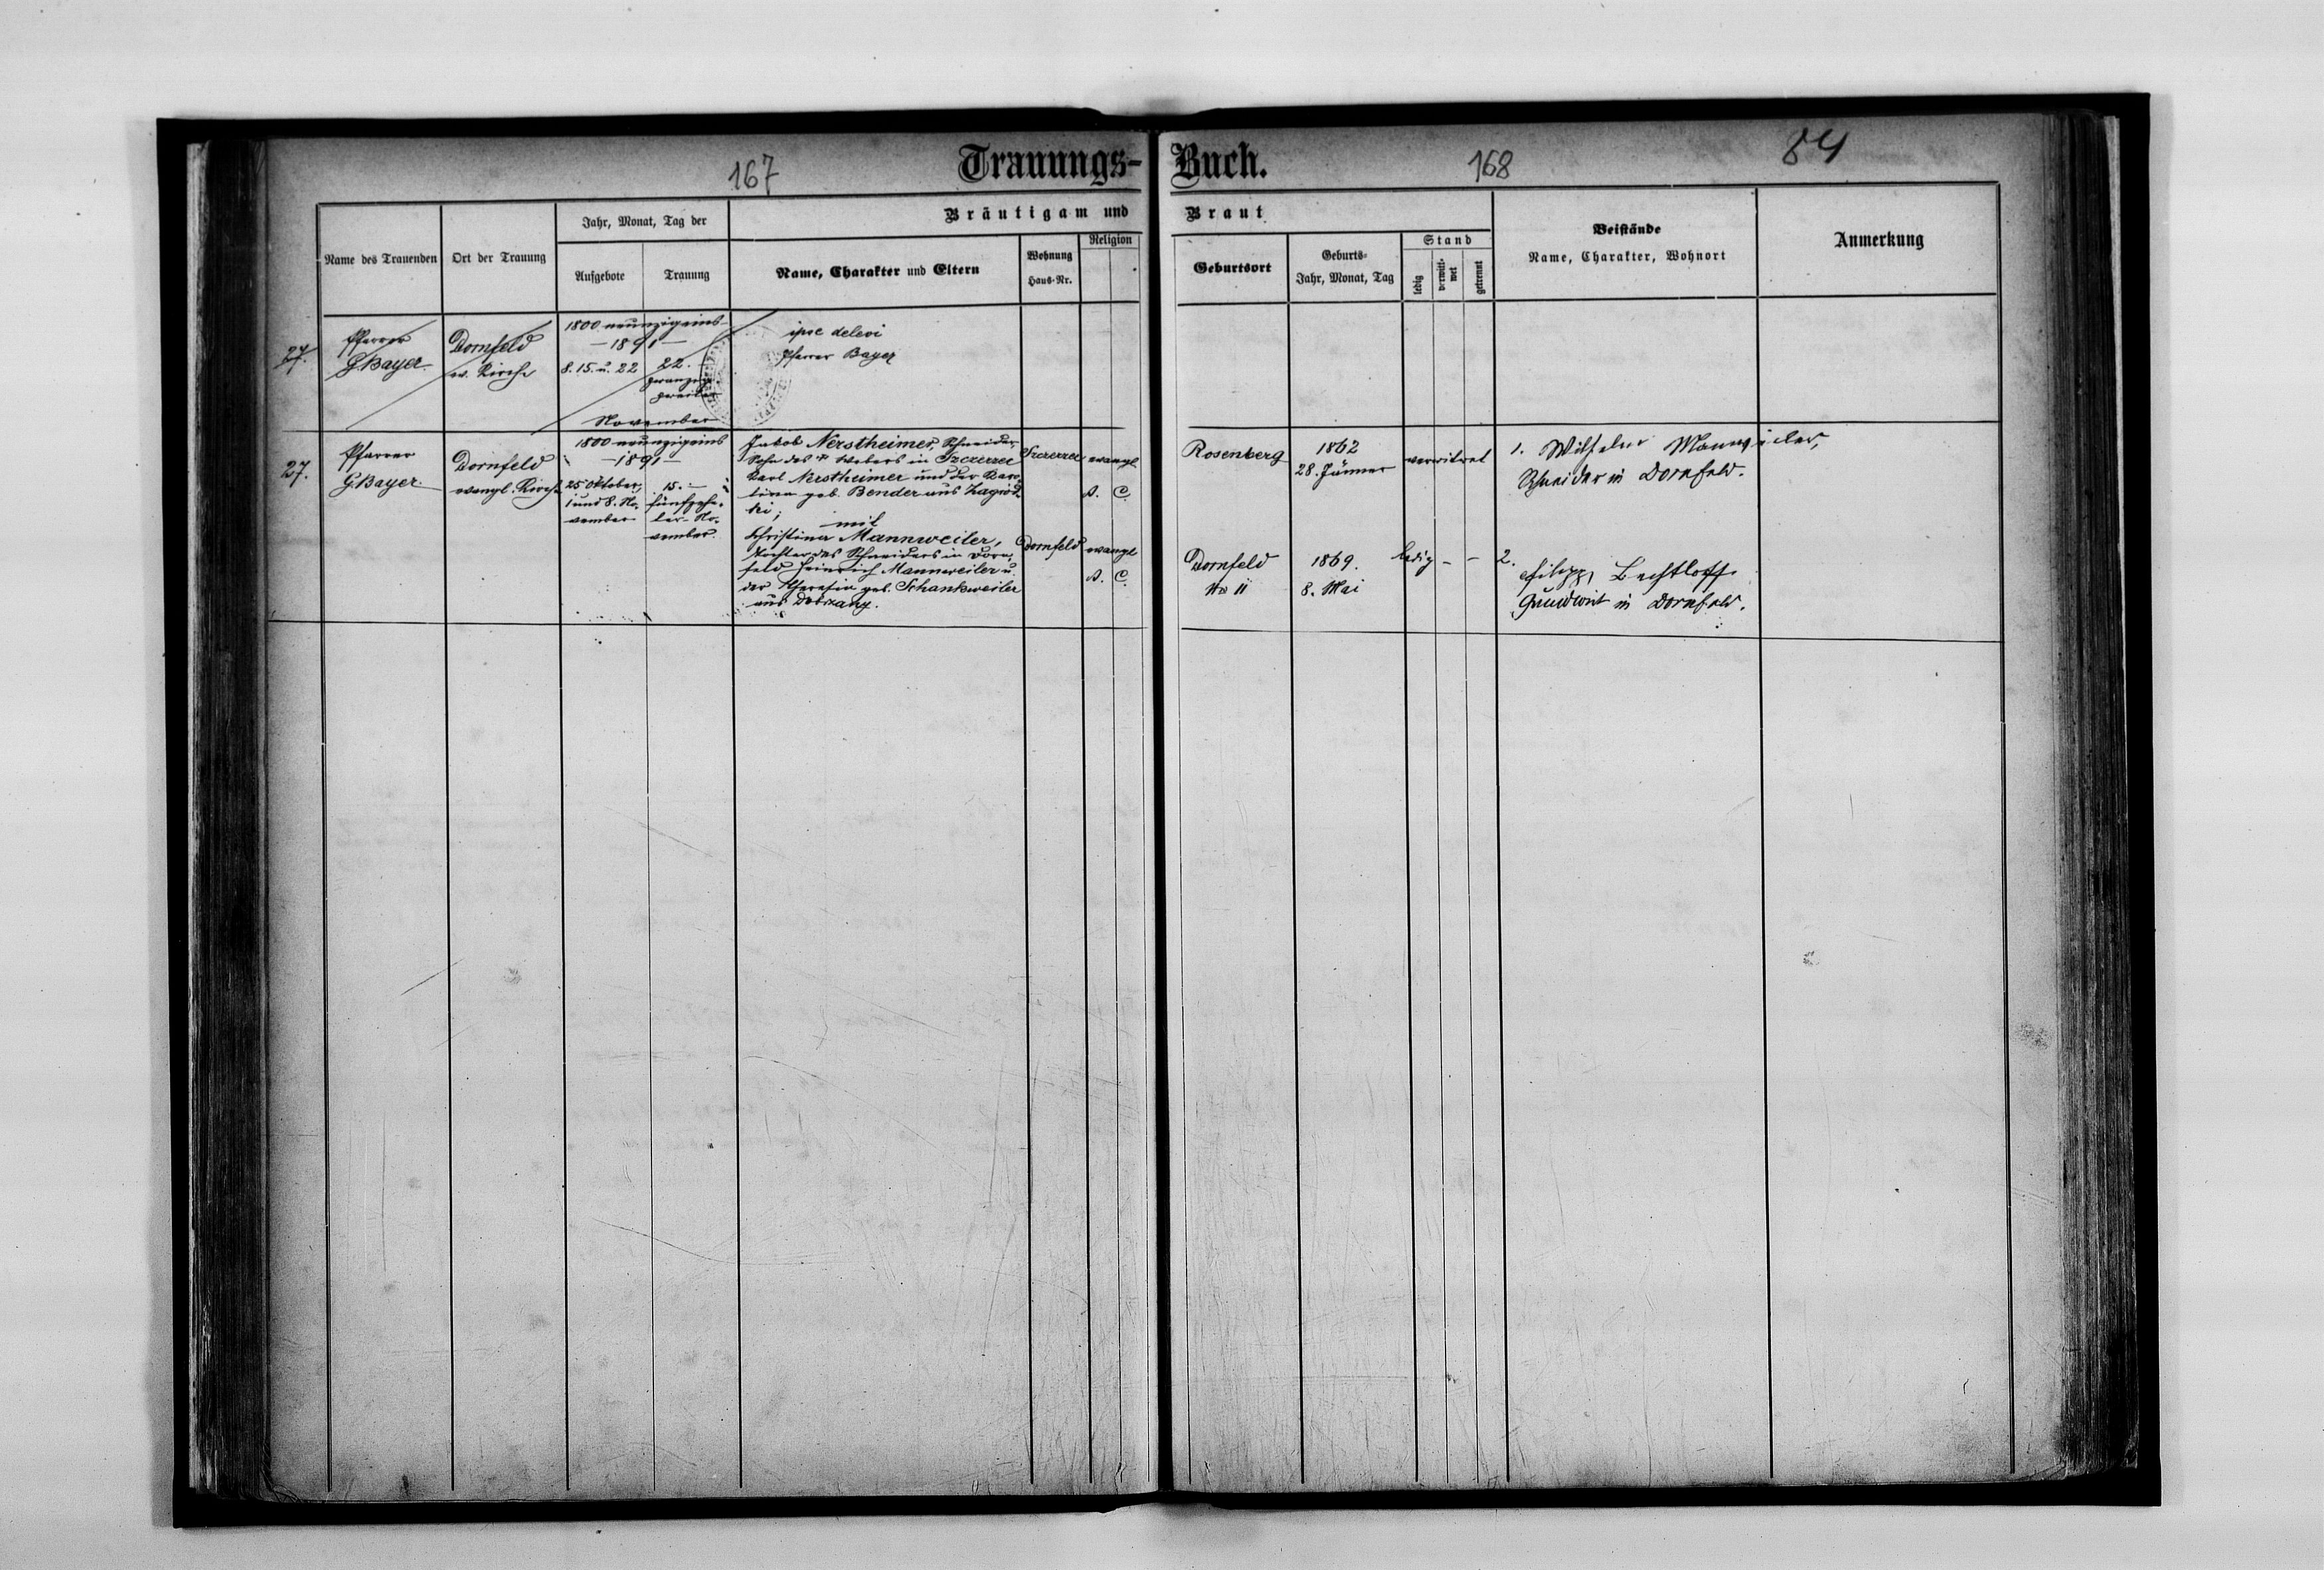 167
Trauungs-Buch.
168
84
Name des Trauenden
Ort der Trauung
Jahr, Monat, Tag der
Aufgebote
Trauung
Bräutigam und Braut
Name, Charakter und Eltern
Wohnung
Haus-Nr.
Religion
Geburtsort
Geburts-
Jahr, Monat, Tag
Stand
ledig
verwitt-
wet
getrennt
Beistände
Name, Charakter, Wohnort
Anmerkung
27.
Pfarrer
GBayer
Dornfeld
ev. Kirche
1800 neunzigeins
— 1891 —
8. 15. u. 22
22.
zwanzig-
zweiten
November
ipse delevi
Pfarrer Bayer
27.
Pfarrer
GBayer.
Dornfeld
evangl. Kirche
1800 neunzigeins
— 1891 —
25 Oktober,
1 und 8. No-
vember
15. —
fünfzehn-
ter No-
vember.
Jakob Nerstheimer, Schneider,
Sohn des † Webers in Szczerzec
Karl Nerstheimer und der Karo-
lina geb. Bender aus Zagród-
ki;
mit
Christina Mannweiler,
Tochter des Schneiders in Dorn-
feld Heinrich Mannweiler u.
der Theresia geb. Schankweiler
aus Dobrzany.
Szczerzec
evangl.
A. C.
Dornfeld
evangl
A. C.
Rosenberg
1862
28. Jänner
verwitwet
1. Wilhelm Mannweiler,
Schneider in Dornfeld.
Dornfeld
No 11
1869.
8. Mai
ledig - -
2.
Filipp Bechtloff
Grundwirt in Dornfeld.